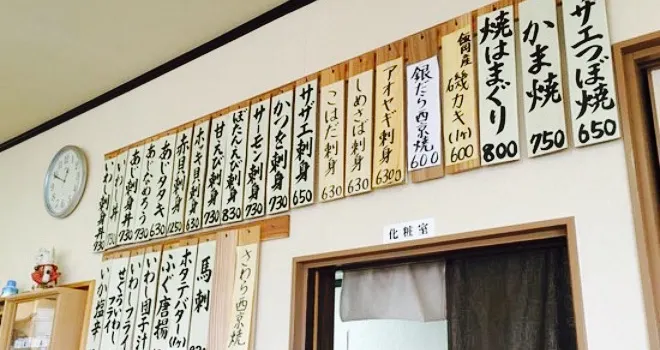 サザエつぼ焼 650
かま焼 750
焼はまぐり 800
飯岡産 磯カキ(1ケ) 600
銀だら西京焼 600
アオヤギ刺身 630
しめさば刺身 630
こはだ刺身 630
サザエ刺身 650
かつを刺身 730
サーモン刺身 730
ぼたんえび刺身 830
甘えび刺身 730
ホッキ貝刺身 630
赤貝刺身 1250
あじタタキ 630
あじなめろう 730
あじ刺身 730
いわし丼
いわし刺身丼 730
さわら西京焼
馬刺
ホタテバター(1ケ)
ふぐ唐揚
いわし団子汁
いわしフライ
せぐろいわしフライ
いか塩辛
化粧室